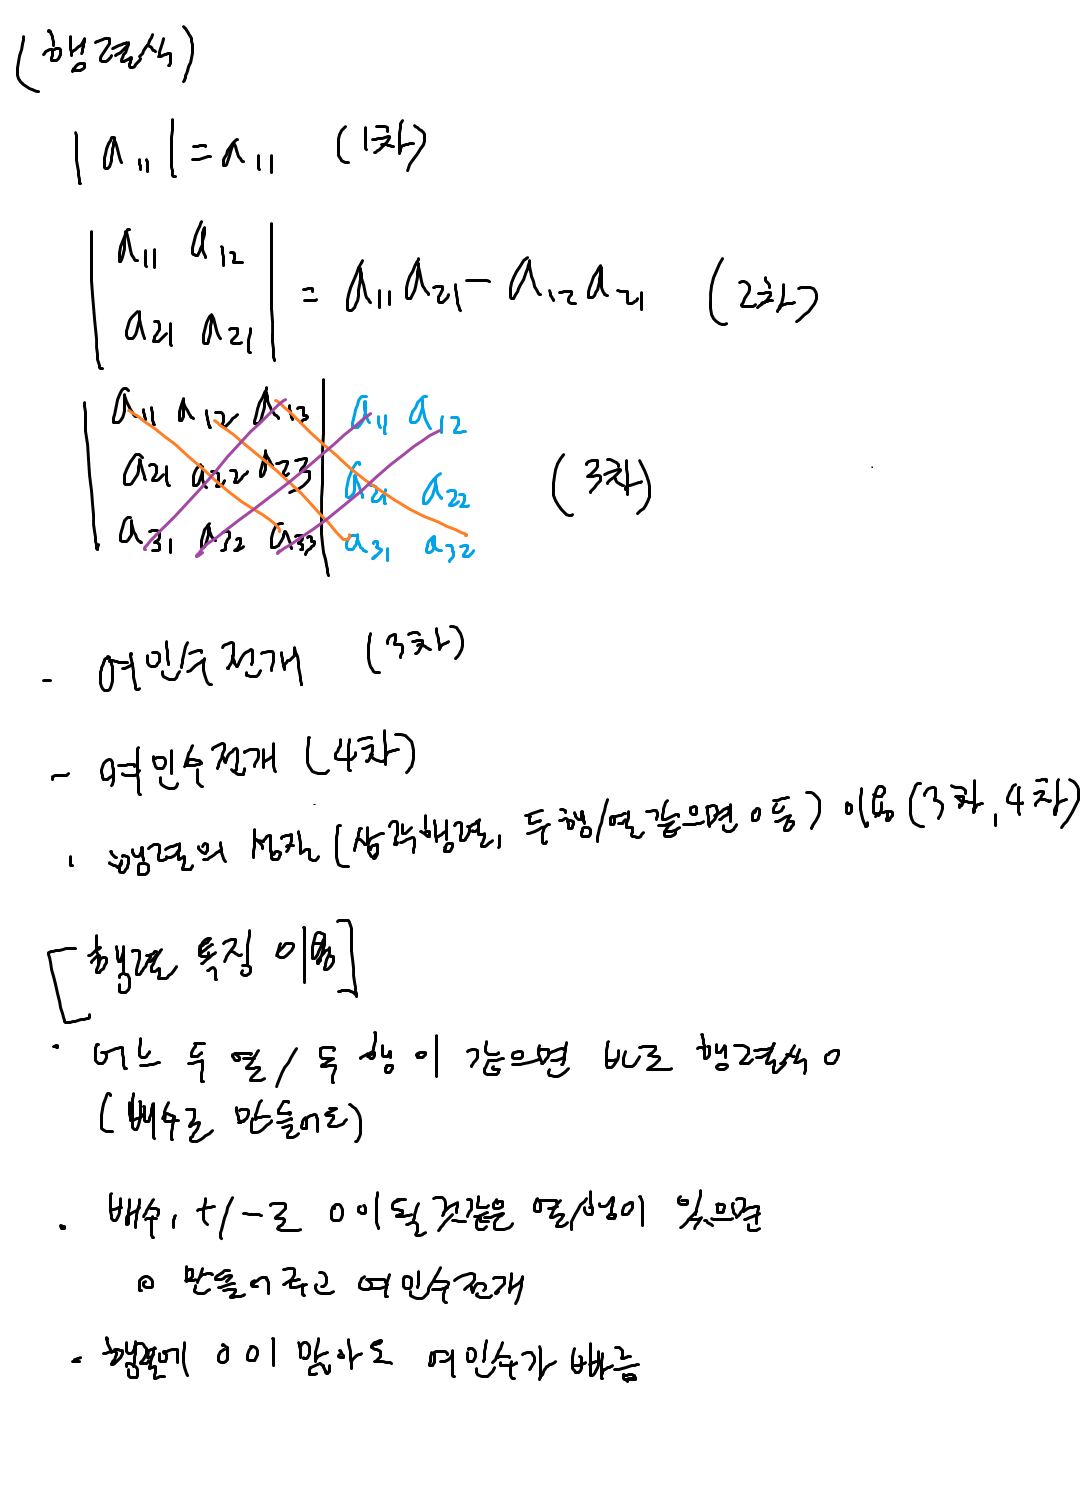 (행렬식)
|a11| = a11 (1차)
|a11 a12|
|a21 a21| = a11 a21 - a12 a21 (2차)
|a11 a12 a13| a11 a12
|a21 a22 a23| a21 a22 (3차)
|a31 a32 a33| a31 a32
- 여인수전개 (3차)
- 여인수전개 (4차)
· 행렬의 성질 (삼각행렬, 두 행/열 같으면 0 등) 이용 (3차, 4차)
[행렬 특징 이용]
· 어느 두 열/두 행이 같으면 바로 행렬식 0
(배수로 만들어도)
· 배수, +/-로 0이 될것같은 열/행이 있으면
0 만들어주고 여인수전개
- 행렬에 0이 많아도 여인수가 빠름